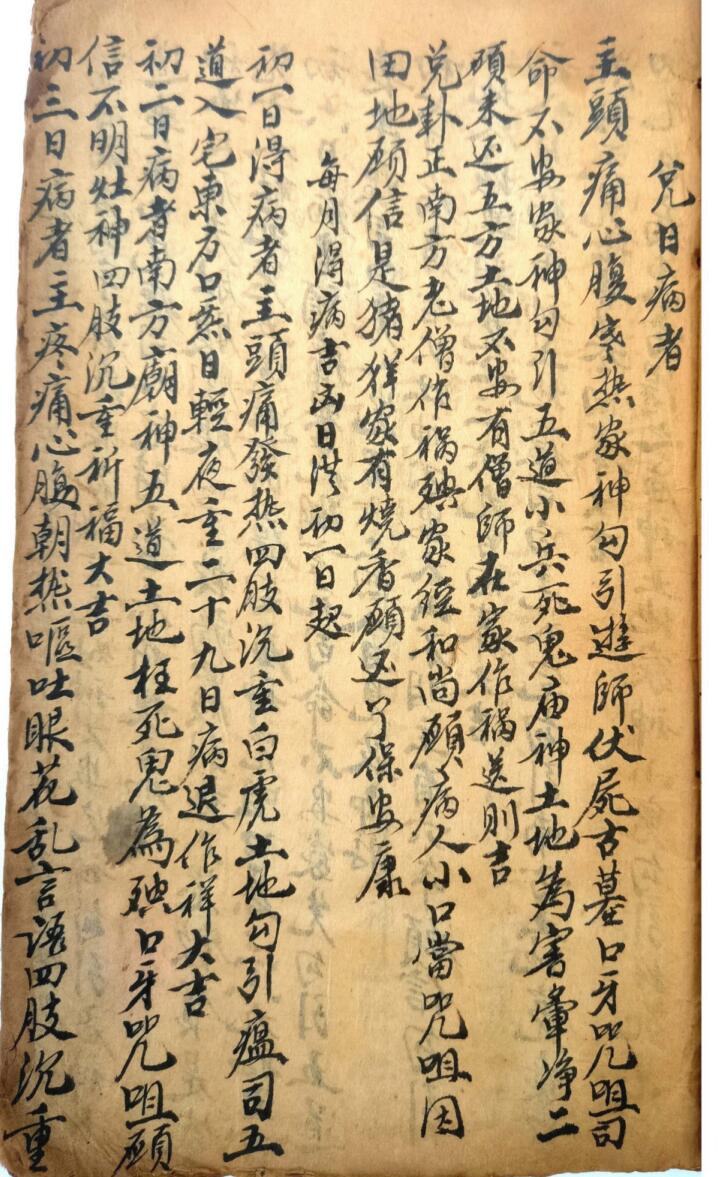 兌日病者
主頭痛心腹寒热家神勾引遊師伏屍古墓口牙咒咀司
命不安家神勾引五道小兵死鬼庙神土地為害葷净二
願未还五方土地不安有僧師在家作禍送則吉
兌卦正南方老僧作禍㺯家經和尚願病人小口當咒咀因
田地願信是猪羊家有燒香願还了保安康
每月得病吉凶日洪初一日起
初一日得病者主頭痛發热四肢沉重白虎土地勾引瘟司五
道入宅東方口惹日輕夜重二十九日病退作祥大吉
初二日病者南方廟神五道土地枉死鬼為殃口牙咒咀願
信不明灶神四肢沉重祈福大吉
初三日病者主疼痛心腹朝热嘔吐眼花乱言語四肢沉重